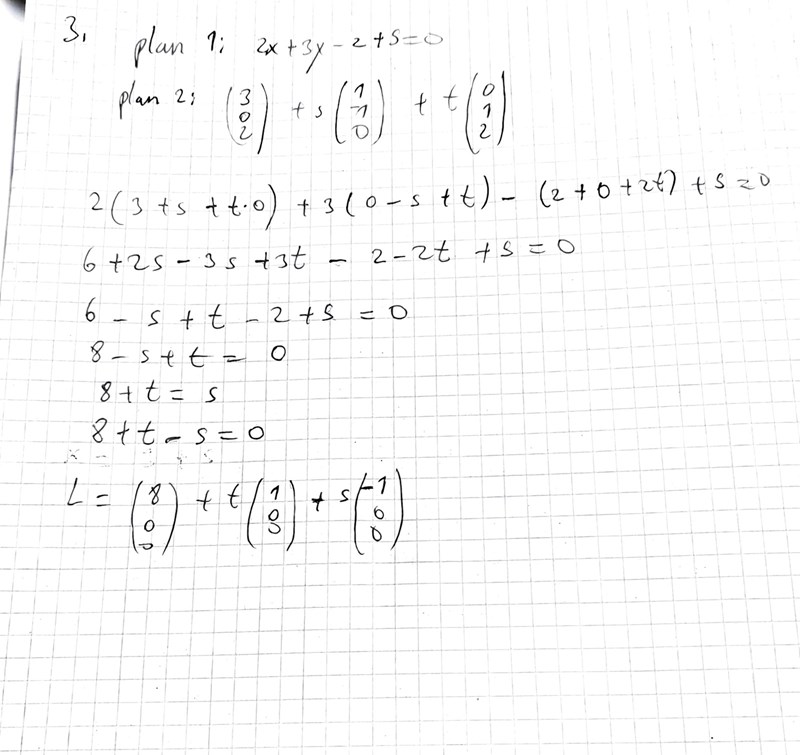 3.
plan 1: 2x+3y-2+5=0
plan 2: (3 0 2) + s (1 -1 0) + t (0 1 2)
2(3+s+t·0)+3(0-s+t)-(2+0+2t)+5=0
6+2s-3s+3t-2-2t+5=0
6-s+t-2+5=0
8-s+t=0
8+t=s
8+t-s=0
L=(8 0 0)+t(1 0 0)+s(-1 0 0)